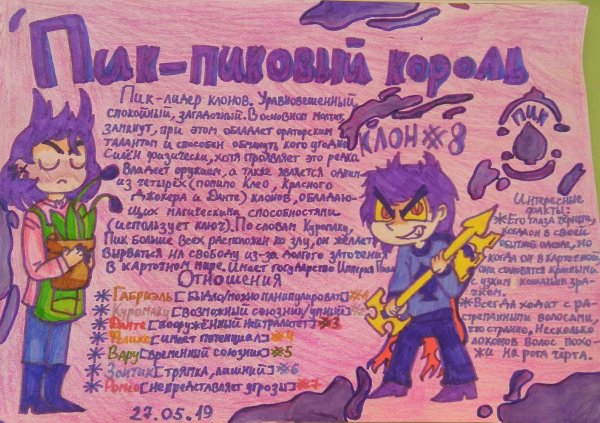 Пик-пиковый король
Пик-лидер клонов. Уравновешенный,
спокойный, загадочный. В основном молчит,
замкнут, при этом обладает ораторским
талантом и способен обмануть кого угодно.
Силён физически, хотя проявляет это редко.
Владеет оружием, а также является одним
из четырёх (помимо Клео, Красного
Джокера и Данте) клонов, обладаю-
щих магическими способностями
(использует ключ). По словам Куромаку,
Пик больше всех расположен ко злу, он желает
вырваться на свободу из-за долгого заточения
в карточном мире. Имеет государство Империя Пика
КЛОН #8
ПИК
Интересные
факты:
*Его глаза
когда он в своей
обычной
когда он в карточной
они становятся красными
с узким кошачьим зра-
чком.
*Всегда ходит с ра-
стрепанными волосами,
что странно, несколько
локонов волос похо-
жи на рога чёрта.
Отношения
*Габриэль [было/можно манипулировать] #1
*Куромаку [возможный союзник/умный] #2
*Данте [вооружённый нейтралитет] #3
*Феликс [имеет потенциал] #4
*Вару [временный союзник] #5
*Зонтик [тряпка, лишний] #6
*Ромео [не представляет угрозы] #7
27.05.19